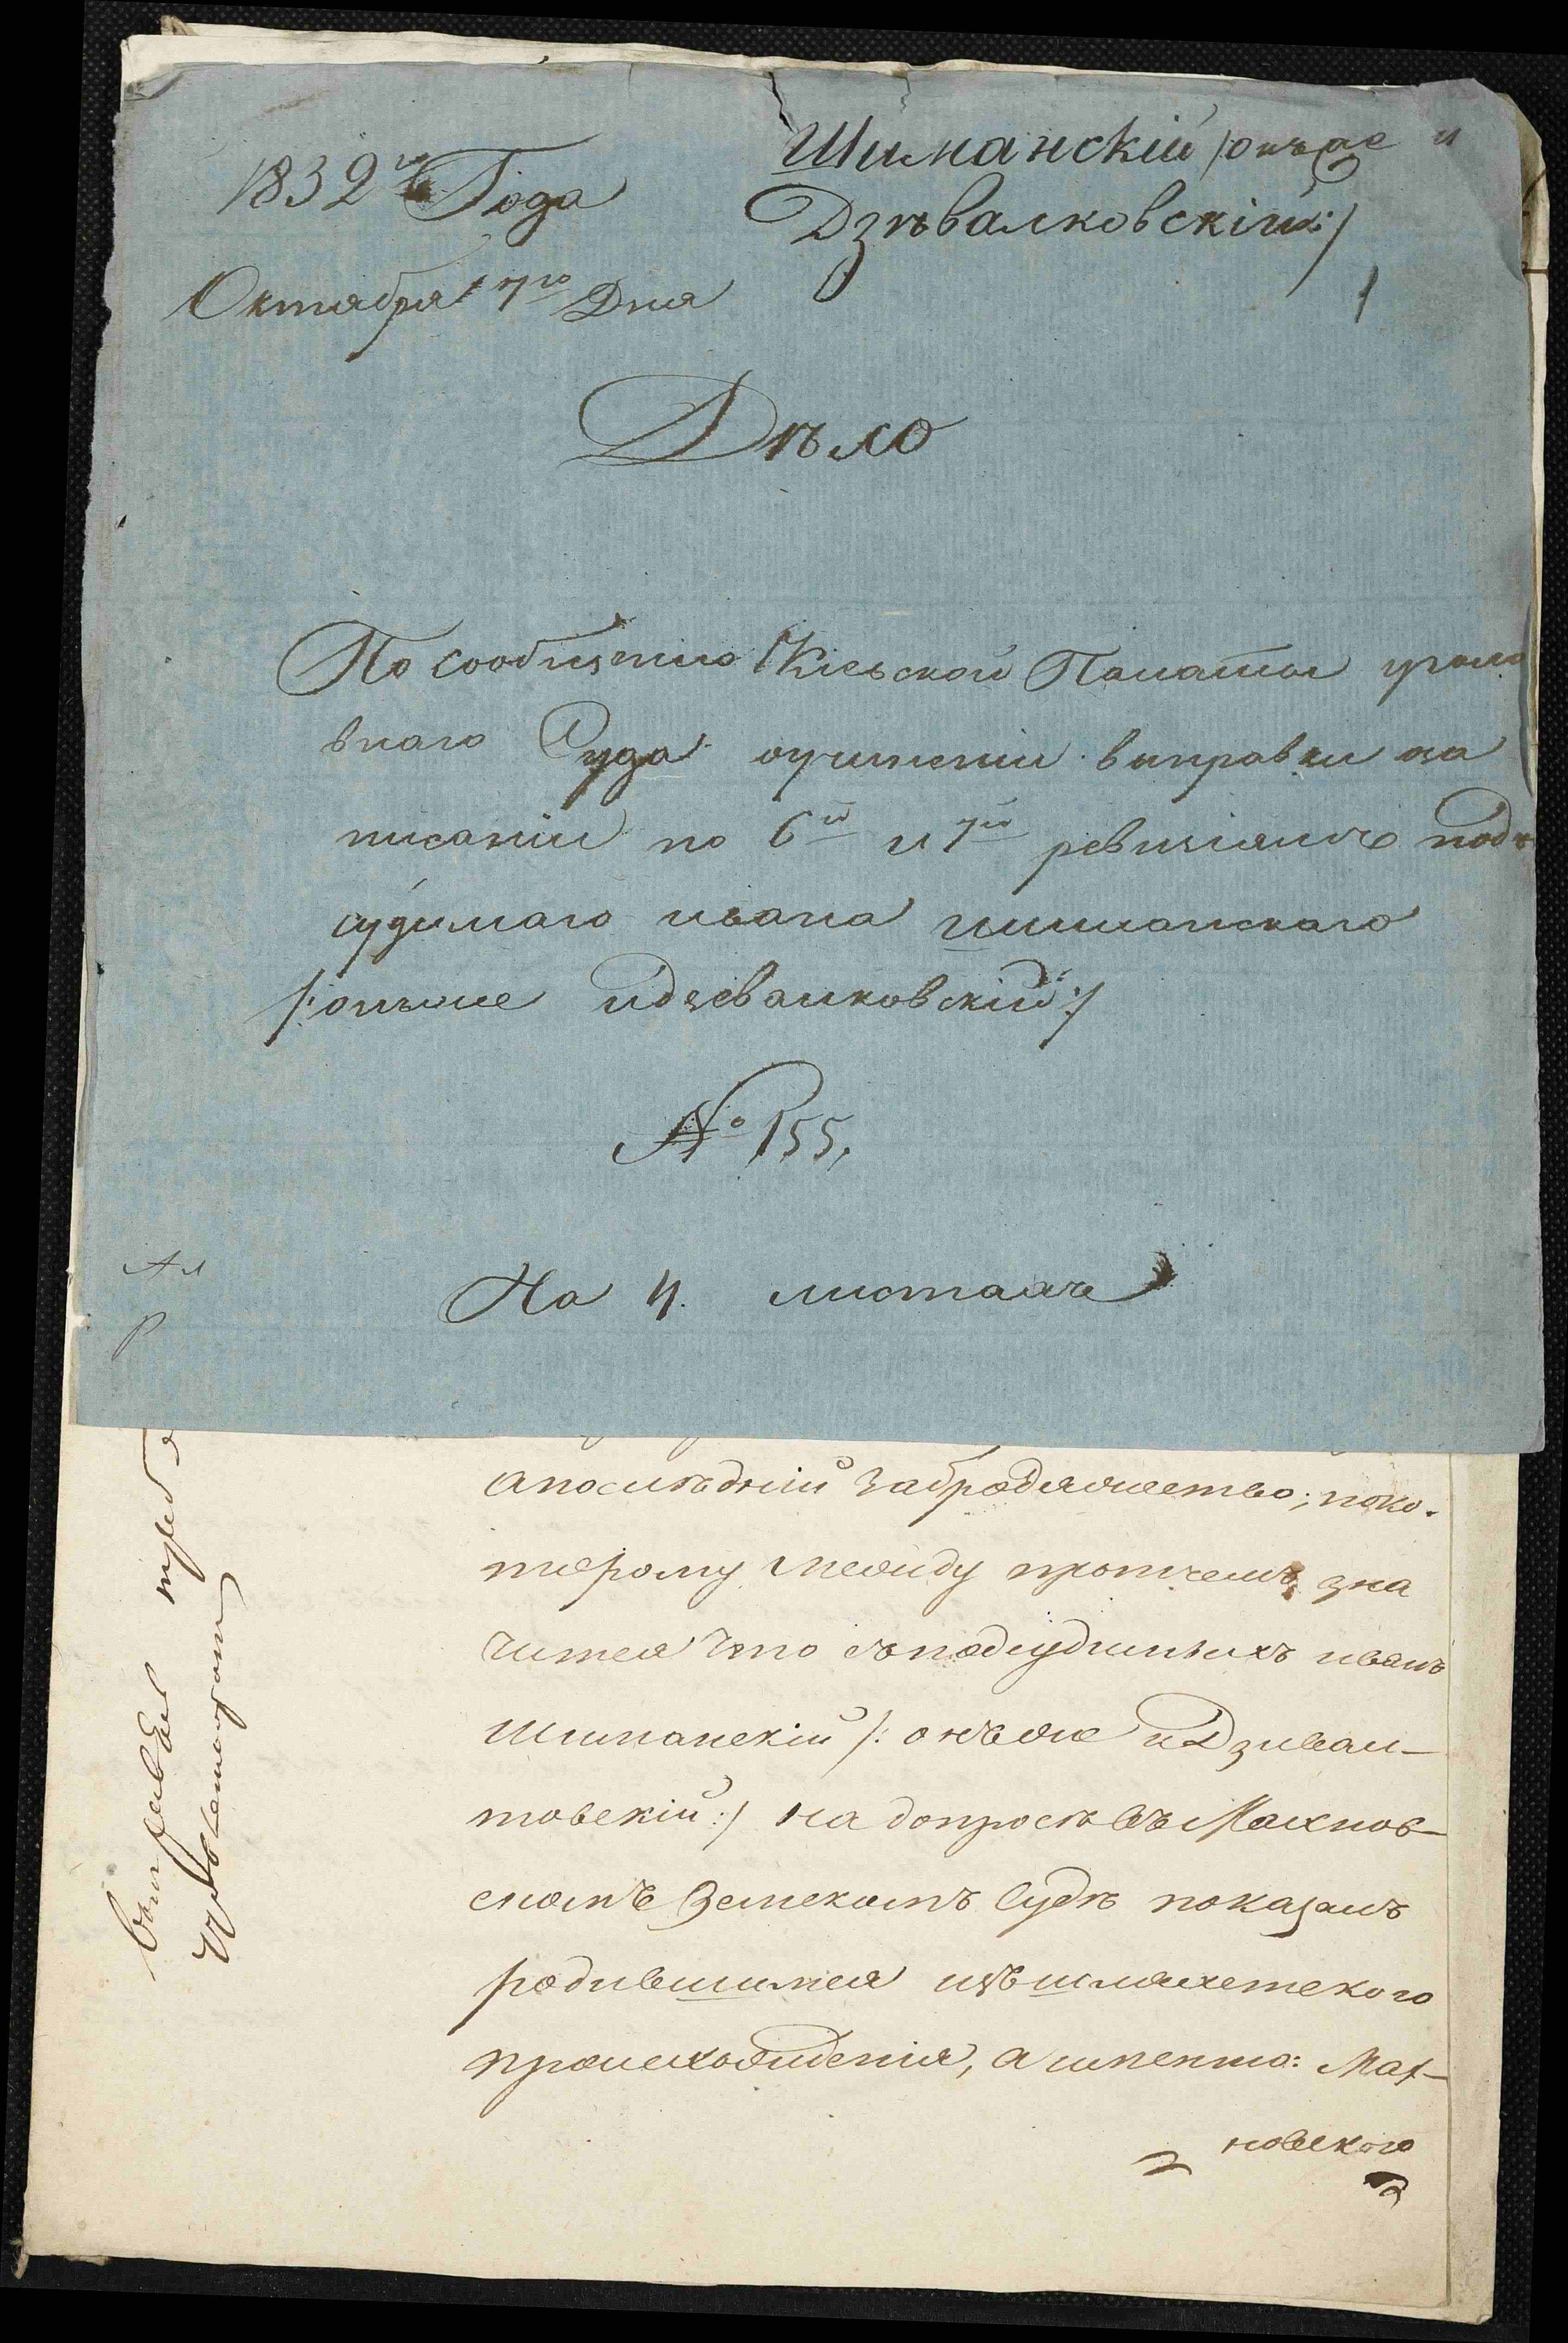 1832го Года
Октября 7го Дня
Шиманскій /онъже и
Дзѣвалковскій:/
1
Дѣло
По сообщенію Кіевской Палаты уголо
внаго Суда оучиненіи выправки на
писаніи по 6й и 7й ревизіямъ подъ
судимаго ивана шиманскаго
/:онъже идзевалковскій:/
№ 155,
На 4. листахъ
апослѣдній забродяжество; поко-
торому между протчемъ зна
чится что съподсудимыхъ иванъ
Шиманскій /: онъже иДзивал-
товскій:/ на допросѣ въ Махнов-
скомъ Земскомъ Судѣ показалъ
родившимся изъ шляхетского
происхожденія, а имѣнно: Мах-
новского